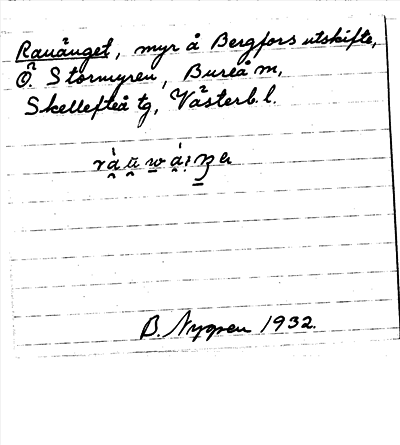 Rauänget, myr å Bergfors utskifte,
Ö. Stormyren, Bureå m,
Skellefteå tg, Västerb.l.
B. Nygren 1932.